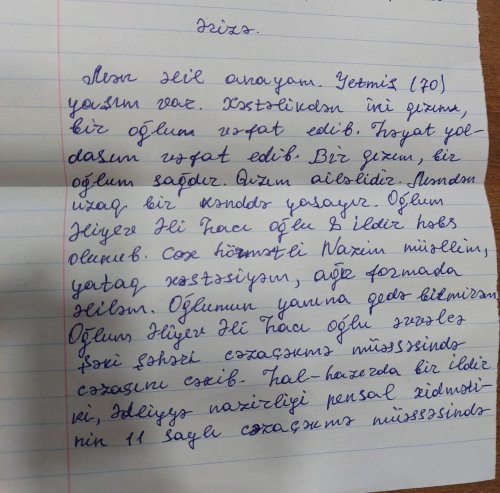 ərizə.
Mən əlil anayam. Yetmiş (70)
yaşım var. Xəstəlikdən iki qızım,
bir oğlum vəfat edib. Həyat yol-
daşım vəfat edib. Bir qızım, bir
oğlum sağdır. Qızım ailəlidir. Məndən
uzaq bir kənddə yaşayır. Oğlum
Əliyev Əli Hacı oğlu 8 ildir həbs
olunub. Çox hörmətli Nazim müəllim,
yataq xəstəsiyəm, ağır formada
əliləm. Oğlumun yanına gedə bilmirəm
Oğlum Əliyev Əli Hacı oğlu əvvəlcə
Şəki şəhəri cəzaçəkmə müəssəsində
cəzasını çəkib. Hal-hazırda bir ildir
ki, Ədliyyə nazirliyi pensal xidməti-
nin 11 saylı cəzaçəkmə müəssəsində